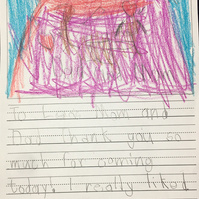 To Love Mom and
Dad Thank you so
much for coming
today! I really like!